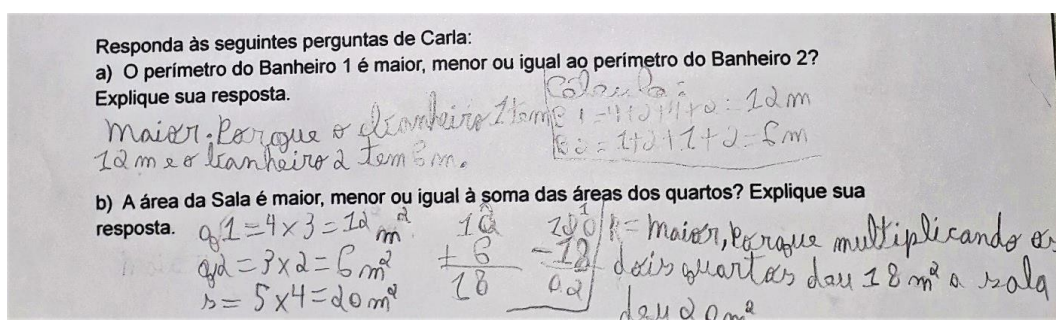 Responda às seguintes perguntas de Carla:
a) O perímetro do Banheiro 1 é maior, menor ou igual ao perímetro do Banheiro 2?
Explique sua resposta.
Cálculo:
Maior. Porque o banheiro 1 tem
12 m e o banheiro 2 tem 6 m.
B 1 = 4+2+4+2 = 12 m
B 2 = 1+2+1+2 = 6 m
b) A área da Sala é maior, menor ou igual à soma das áreas dos quartos? Explique sua
resposta.
q1 = 4 x 3 = 12 m²
q2 = 3 x 2 = 6 m²
s = 5 x 4 = 20 m²
12
+ 6
18
- 18
02
R = Maior, Porque multiplicando os
dois quartos deu 18 m² a sala
deu 20 m²